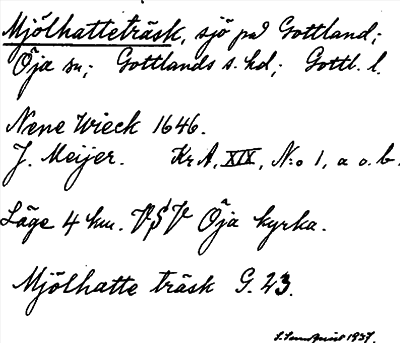 Mjölhatteträsk, sjö på Gottland;
Öja sn; Gottlands s. hd; Gottl. l.
Nene Wieck 1646.
J. Meijer. Kr A, XIX, N:o 1, a o. b.
Läge 4 km. VSV Öja kyrka.
Mjölhatte träsk G. 23.
1937.